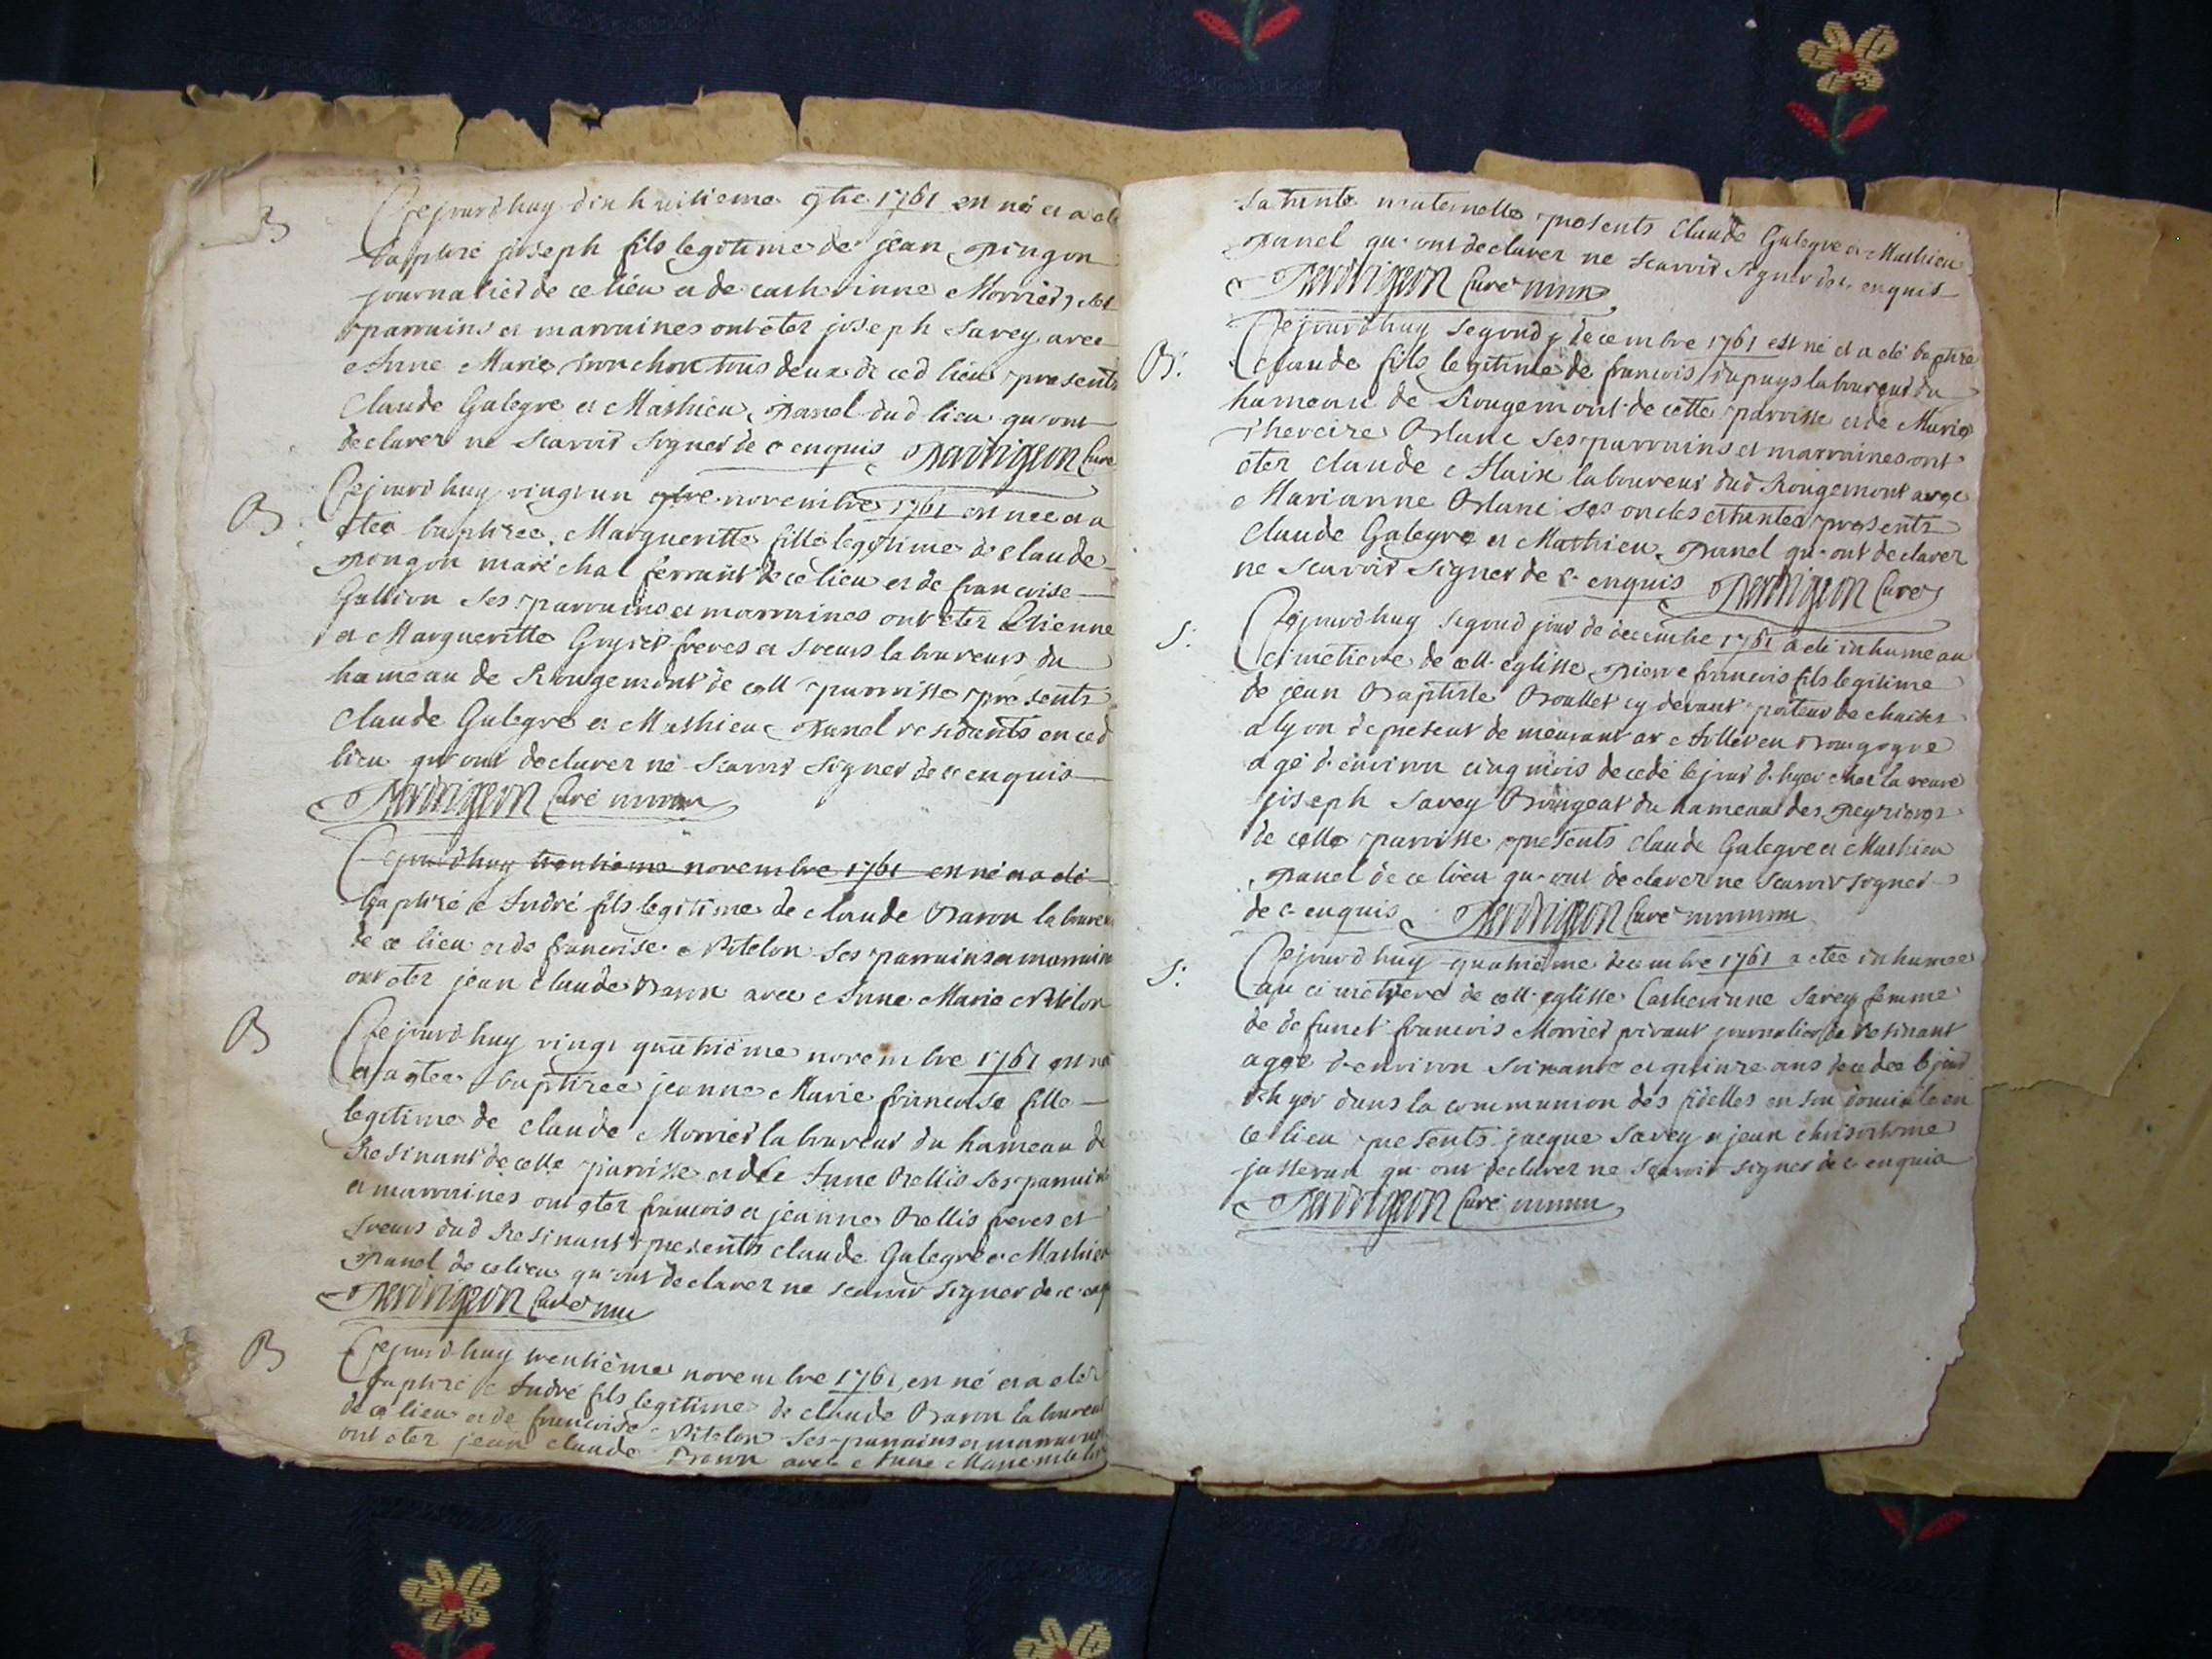 B Cejourdhuy dix huitieme 9bre 1761 est né et a eté
baptisé joseph fils legitime de jean pingon
journalier de ce lieu et de catherinne Morrier, ses
parrains et marraines ont eter joseph Savey avec
Anne Marie tous deux de ced lieu presents
Claude Galegre et Mathieu panel dud lieu qu'ont
declarer ne scavoir signer de c enquis curé
B Cejourdhuy vingt un novembre 1761 est nee et a
etee baptisee Margueritte fille legitime de claude
pongon maréchal ferrant de ce lieu et de francoise
Gallion ses parrains et marraines ont eter Etienne
et Margueritte freres et soeurs laboureurs du
hameau de Rougemont de cett parroisse présents
Claude Galegre et Mathieu panel residents en ced
lieu qu'ont declarer ne scavoir signer de c enquis
Curé
Cejourdhuy trentieme novembre 1761 est né et a eté
baptisé Andre fils legitime de claude Baron laboureur
de ce lieu et de francoise Vitelon ses parrains et marraine
ont eter jean claude Baron avec Anne Marie Vitelon
B Cejourdhuy vingt quatriéme novembre 1761 est née
et a etee baptizee jeanne Marie francoise fille
legitime de claude Morrier laboureur du hameau de
Resinant de cette parroisse et de Anne Bellis ses parrains
et marraines ont eter francois et jeanne Bellis freres et
soeurs dud Resinant presents claude Galegre et Mathieu
panel de ce lieu qu'ont declarer ne scavoir signer de c enq
Curé
B Cejourdhuy trentiéme novembre 1761 est né et a eter
baptisé Andre fils legitime de claude Baron laboureur
de ce lieu et de francoise Vitelon ses parrains et marraines
ont eter jean claude Baron avec Anne Marie
sa tante maternelle presents Claude Galegre et Mathieu
panel qu'ont declarer ne scavoir signer de c enquis
Curé
B: Cejourdhuy segond decembre 1761 est né et a eté baptise
claude fils legitime de francois dupuys laboureur du
hameau de Rougemont de cette parroisse et de Marie
ses parrains et marraines ont
eter claude Alaix laboureur dud Rougemont avec
Marianne ses oncles et tantes presents
Claude Galegre et Mathieu panel qu'ont declarer
ne scavoir signer de c enquis Curé
S: Cejourdhuy segond jour de decembre 1761 a eté inhume au
cimetiere de cett eglisse pierre francois fils legitime
de jean Baptiste Boullet cy devant porteur de chaises
a lyon de present demeurant a en Bourgogne
agé d'environ cinq mois decedé le jour d'hyer chez la veuve
joseph Savey du hameau des
de cette parroisse presents claude Galegre et Mathieu
panel de ce lieu qu'ont declarer ne scavoir signer
de c enquis Curé
S: Cejourdhuy quatriéme decembre 1761 a etee inhumee
au cimetiere de cett eglisse Catherinne Savey femme
de defunct francois Morrier vivant journalier de Resinant
agge d'environ soixante et quinze ans decedee le jour
d'hyer dans la communion des fidelles en son domicile en
ce lieu presents jacque Savey et jean
qu'ont declarer ne scavoir signer de c enquis
Curé